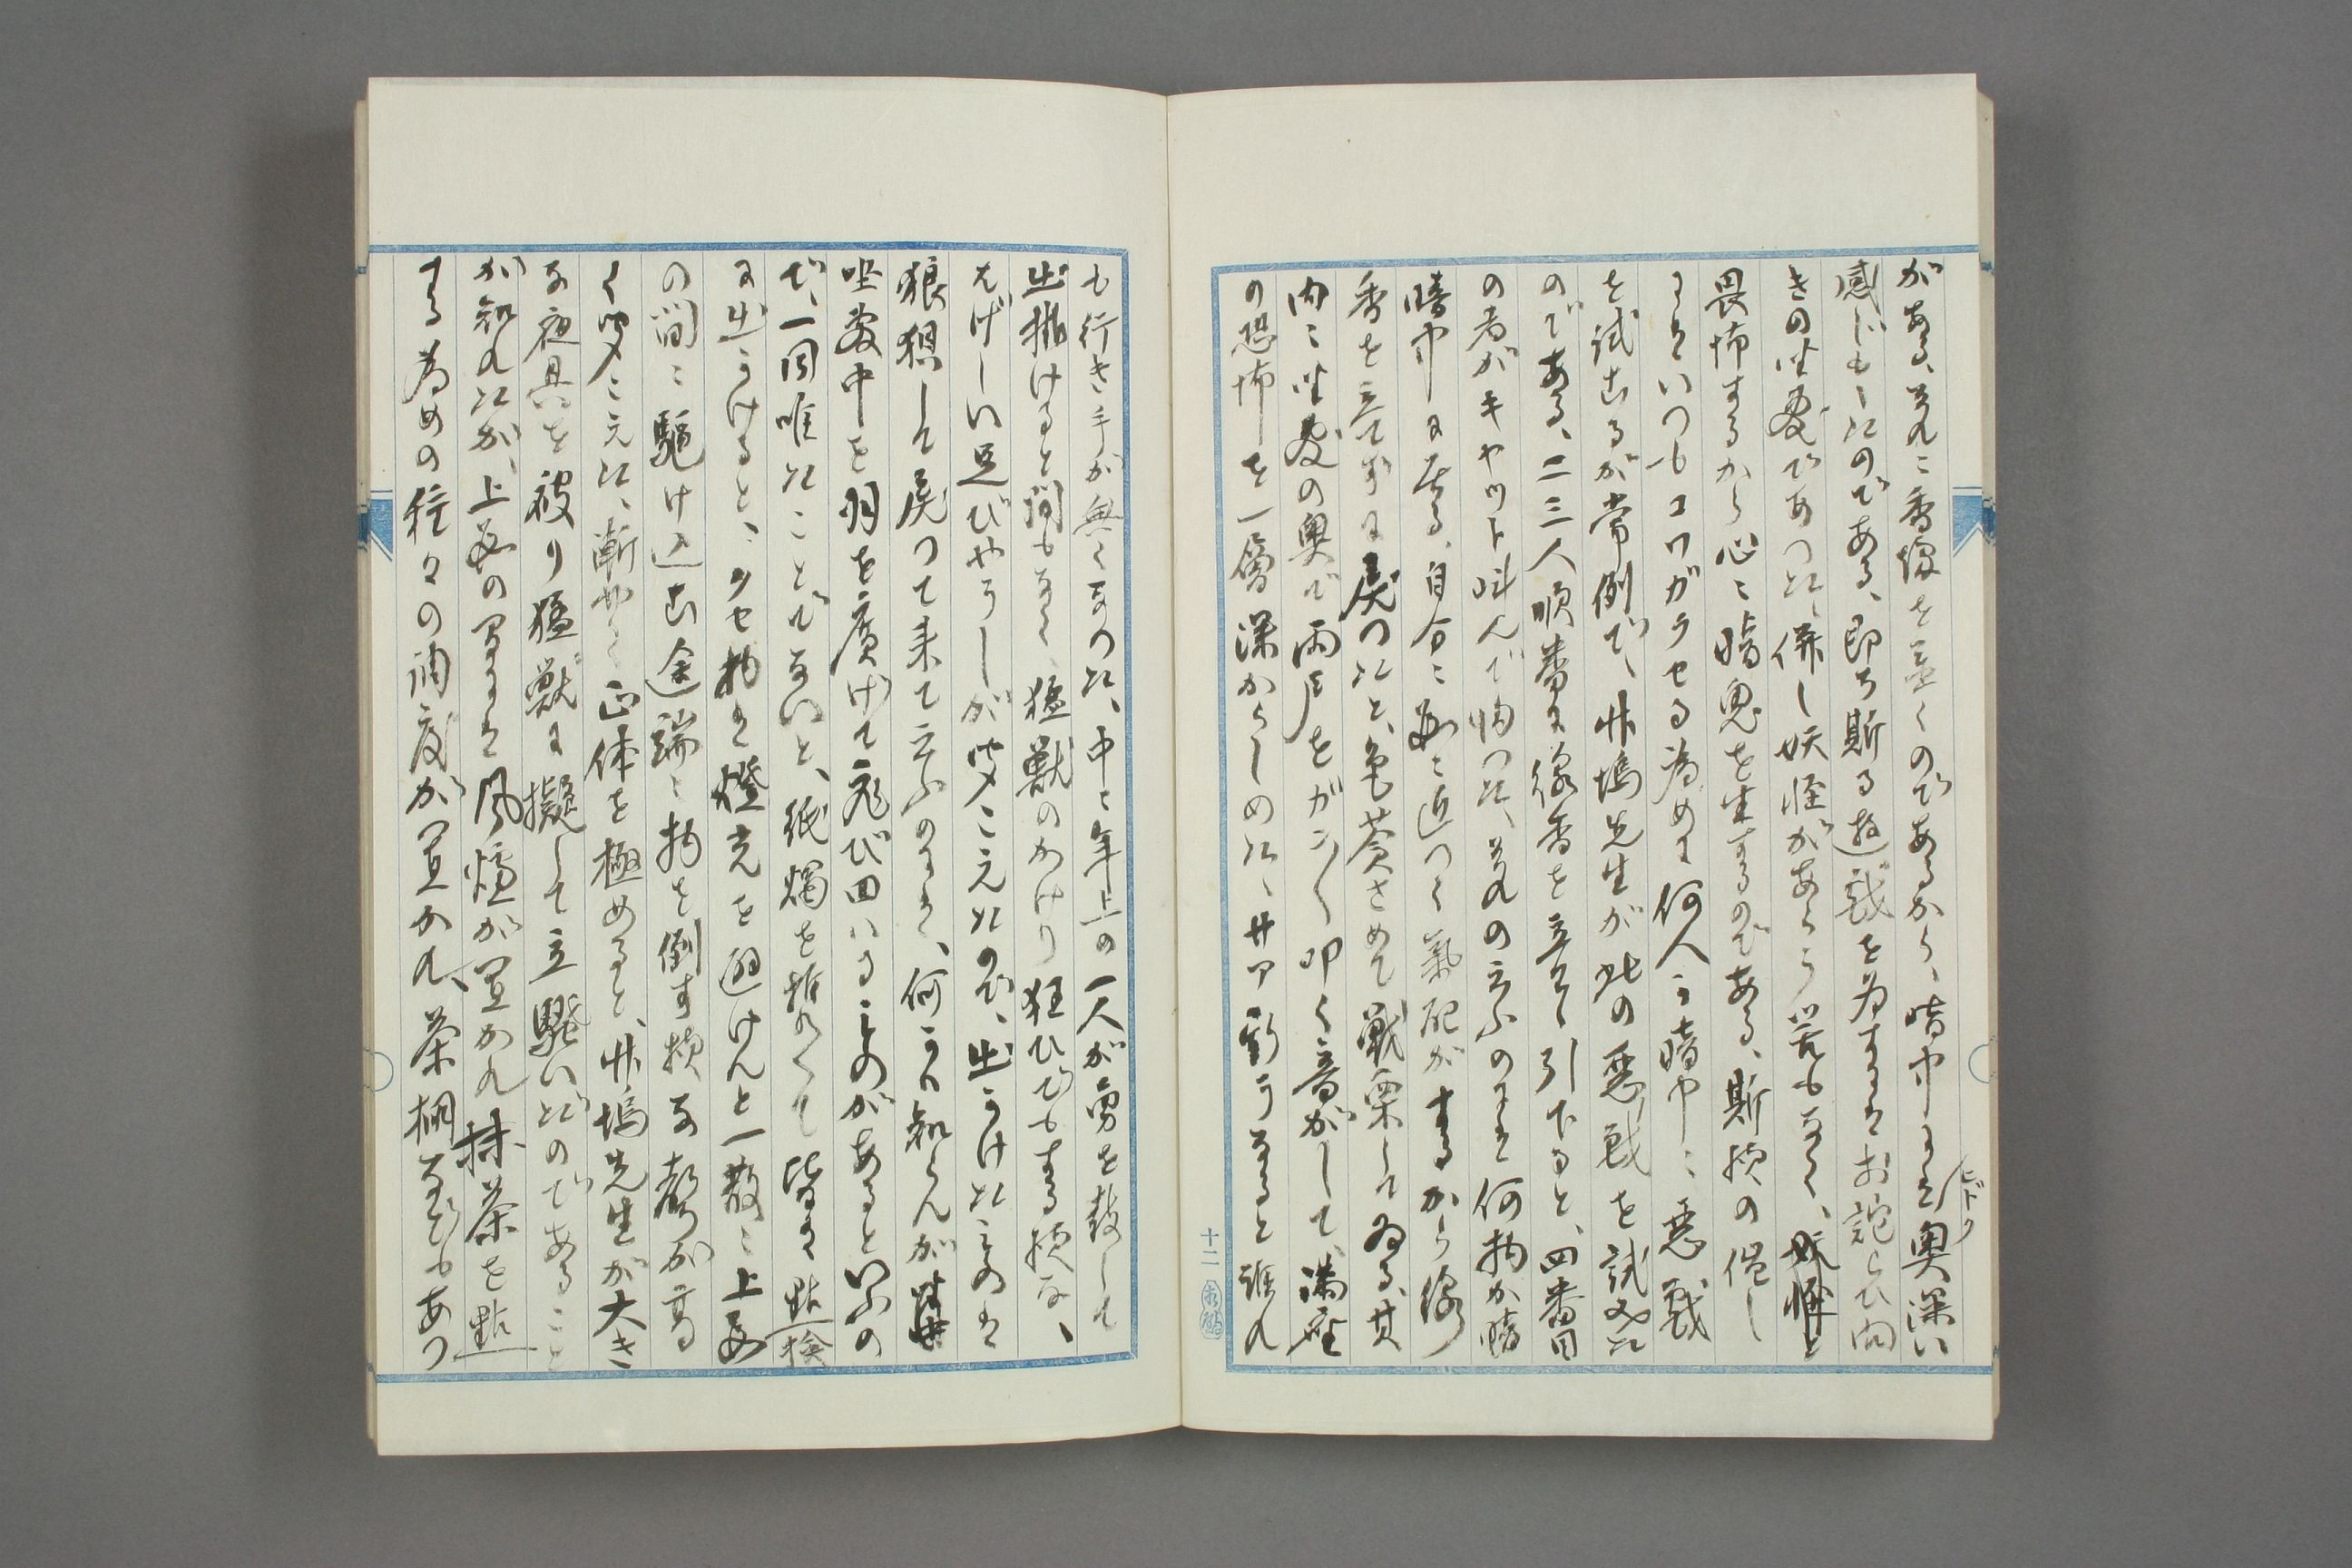 がある、其れに香線を立てくのであるから、暗中には奥深い
ヒドク
感じもしたのである、即ち斯る遊戯を為すにはお誂らひ向
きの坐敷であつた、併し妖怪があらう筈もなく、妖怪と
畏怖するから心に暗鬼を生ずるのである、斯様の催し
にはいつもコワガラセる為めに何人か暗中に悪戯
を試むるが常例で、竹塢先生が此の悪戯を試みた
のである、二三人順番に線香を立てゝ引下ると、四番目
の者がキヤツト叫んで帰つた、其れの云ふのには何物か暗
暗中に居る、自分に近つく氣配がするから線
香を立てずに戻つたと、色蒼さめて戰栗して居る、其
内に坐敷の奥で雨戸をガンガン叩く音がして、満座
の恐怖を一層深からしめた、サア斯うなると誰れ
十二
も行き手が無くなつた、中に年上の一人が勇を鼓して
出掛けると間もなく、猛獣のかけり狂ひでもする様な、
はげしい足びやうしが聞こえたので、出かけたものは
狼狽して戻つて来て云ふのには、何か知らんが
坐敷中を羽を廣げて飛び回はるものがあるといふの
で、一同唯たことでないと、紙燭を携へて皆な點検
に出かけると、クセ物は燈光を避けんと一散に上段
の間に駆け込む途端に物を倒す様な音が高
く聞こえた、漸やく正体を極めると、竹塢先生が大き
な夜具を被り猛獣に擬して立騒いだのであること
が知れたが、上段の間には風爐が置かれ抹茶を點
する為めの種々の調度が置かれ、茶棚などもあつ